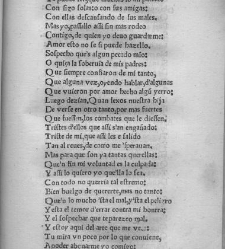 Con sigo solazo con sus amigas:
Con ellas discansando de sus males.
Mas yo, passillo assi sin mas rodeo
Contigo, de quien yo deuo guardarme:
Amor esto no se si puede hazello,
Sospecho que's algun pecado mio.
O quiça la soberuia de mis padres:
Que siempre confiaron de mi tanto,
Que alguna vez, oyendo hablar, d'algunos
Que vuieron por amor hecho algũ yerro:
Luego dezian, Quan lexos nuestra hija
De verse en otro tanto, por mas fuertes
Que fuessen, los combates que le diessen,
Triste d'ellos que assi s'an engañado:
Triste de mi, que assi les e salido
Tan al reues, de como me sperauan.
Mas para que son ya tantas querellas:
Que en fin mi voluntad es la culpada:
Y assi lo quiero yo que'lla lo sea,
Con todo no querria tal estremo:
Bien huelgo de quererte, mas no tanto:
Qu'en lo mucho sta el mal, y sta el peligro
Y esta el temor d'errar contra mi honrra:
Y el sospechar que tepareceo mal,
Y estoy aqui del arte que me ve:
Tu mira vn poco por lo que conuiene,